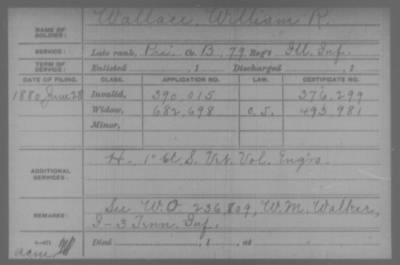 Wallace, William R.
NAME OF SOLDIER:
SERVICE: Late rank, Pri. Co. B, 79 Reg't Ill. Inf.
TERM OF SERVICE: Enlisted , 1 Discharged , 1
DATE OF FILING. CLASS. APPLICATION NO. LAW. CERTIFICATE NO.
1880 June 28 Invalid, 390.015 376.299
Widow, 682.698 493.981
Minor,
ADDITIONAL SERVICES: H. 1" U.S. Vet. Vol. Eng'rs.
REMARKS: See W.O 236809, W.M. Walker,
I-3 Tenn. Inf.
Died , 1 , at